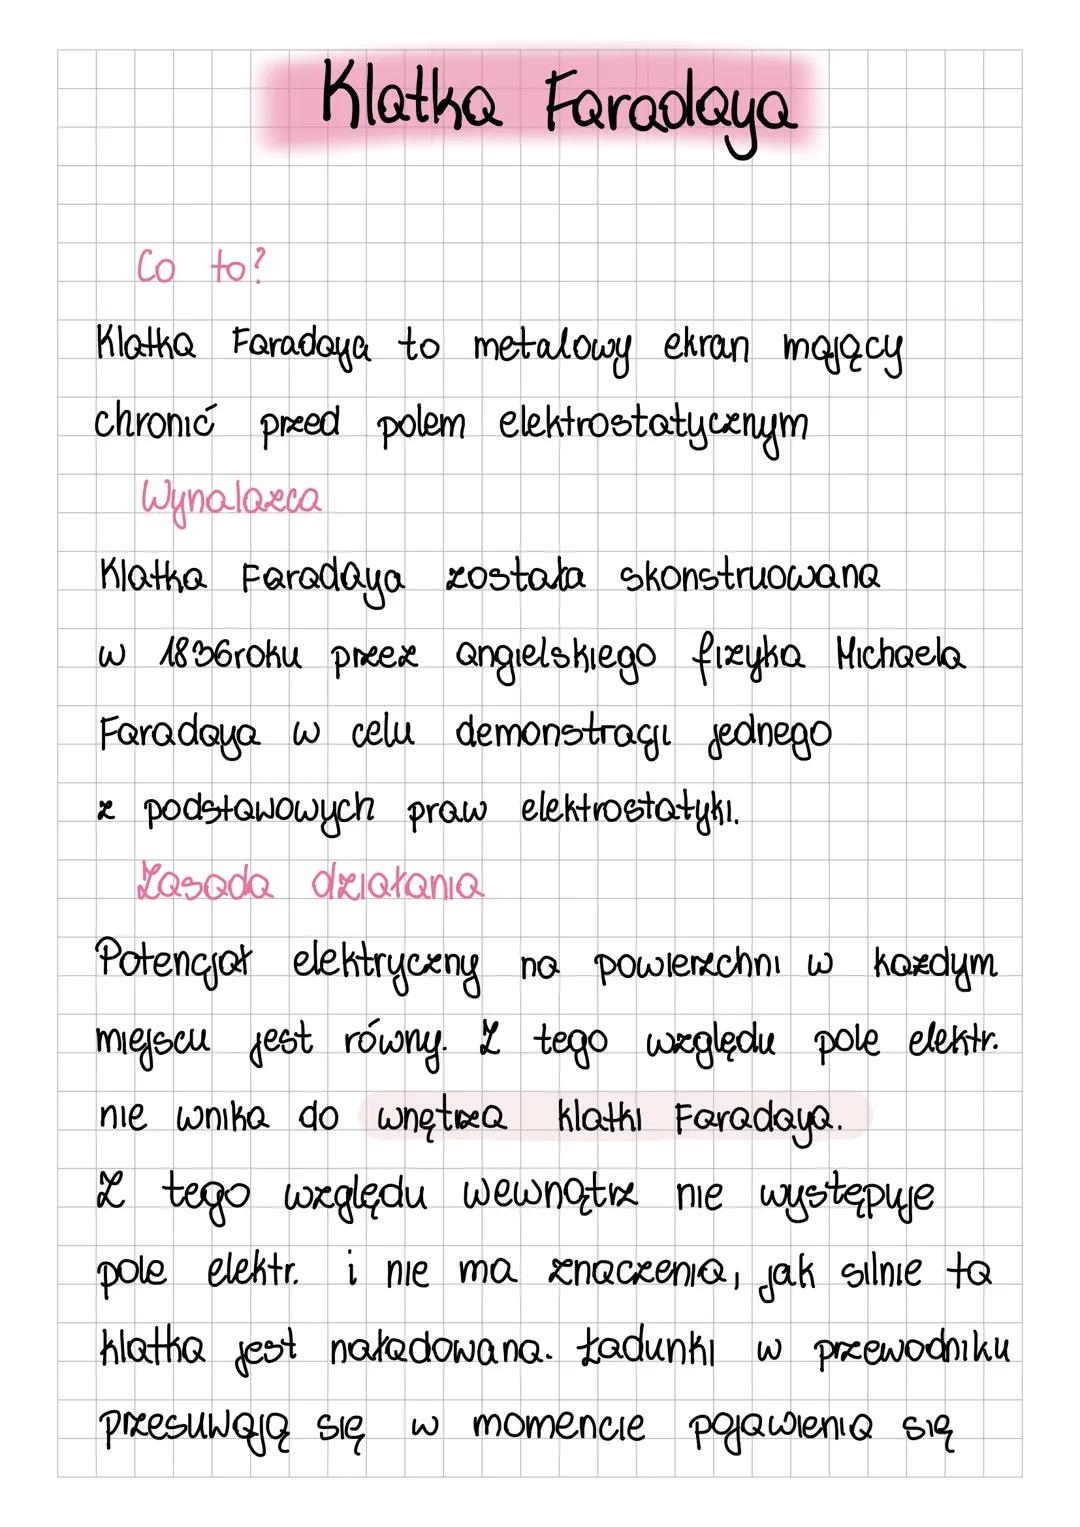 Klatka Faradaya
Co to?
Klatka Faradaya to metalowy ekran mający
chronić przed polem elektrostatycznym
Wynalazca
Klatka Faradaya została skonstruowana
w 1836roku przez angielskiego fizyka Michaela
Faradaya w celu demonstracji jednego
z podstawowych praw elektrostatyki.
Zasada działania
Potencjał elektryczny na powierzchni w każdym
miejscu jest równy. Z tego względu pole elektr.
nie wnika do wnętrza klatki Faradaya.
Z tego względu wewnątrz nie występuje
pole elektr. i nie ma znaczenia, jak silnie ta
klatka jest naładowana. Ładunki w przewodniku
przesuwają się w momencie pojawienia się